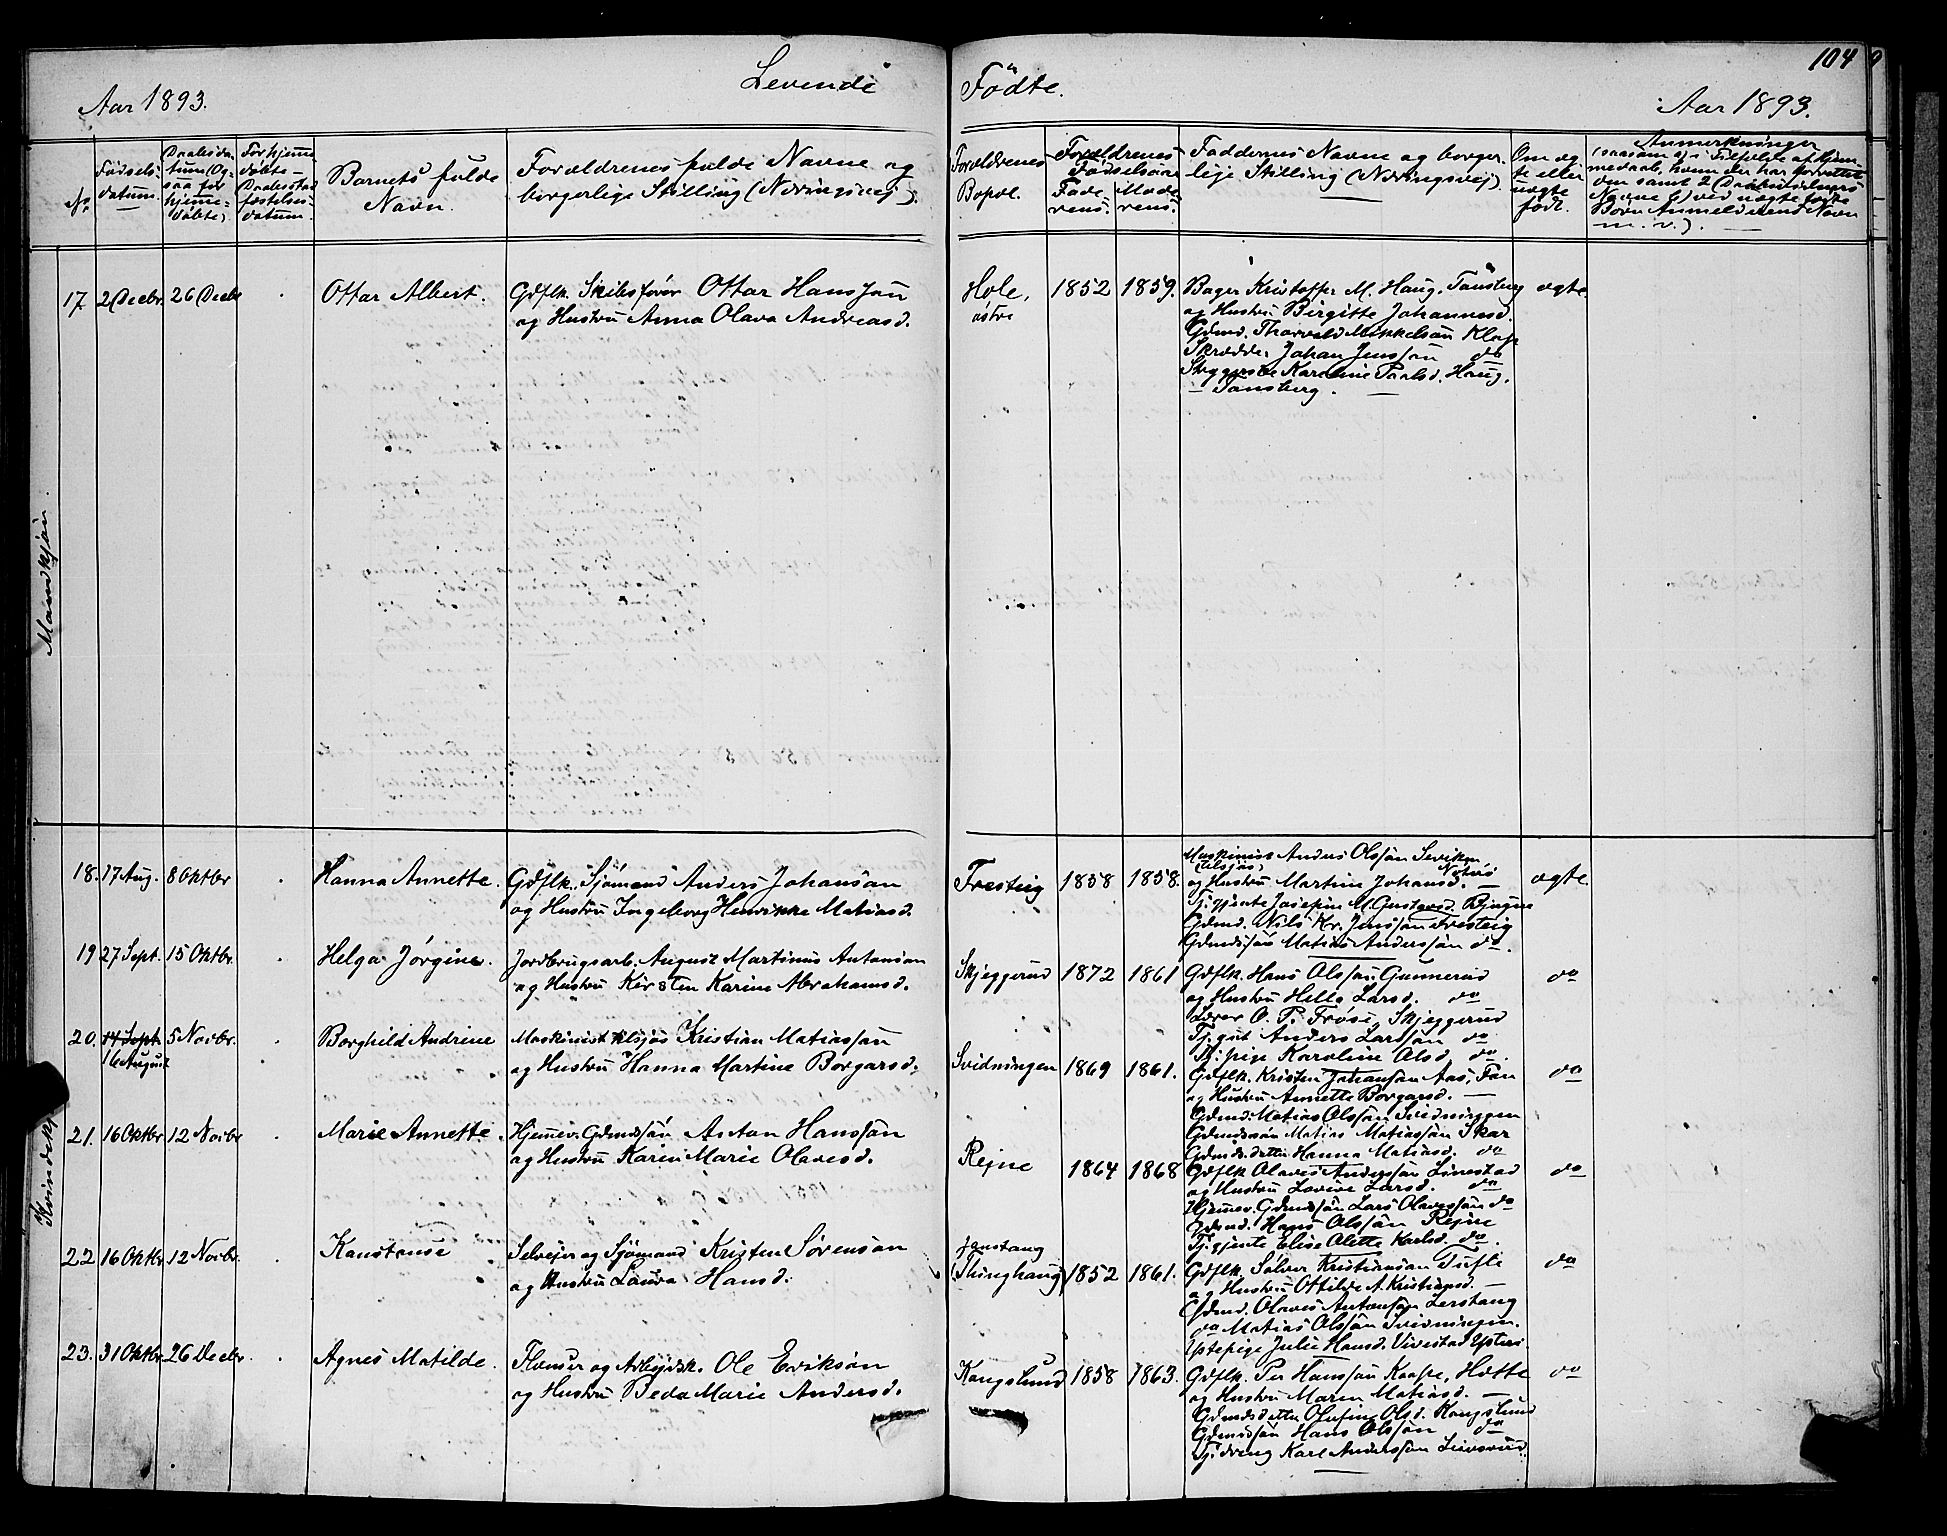 104
Aar 1893. Levende Födte. Aar 1893.
No
Födsels-
datum.
Daabsda-
tum (Og-
saa for
hjemme-
döbte)
For hjemme
döbte –
Daabsstad
fæstelses-
datum.
Barnets fulde
Navn.
Forældrenes fulde Navne og
borgerlige Stilling (Næringsvej).
Forældrenes
Bopæl.
Forældrenes
Födselsaar
Fade-
rens.
Mode-
rens.
Faddernes Navne og borger-
lige Stilling (Næringsvej)
Om æg-
te eller
uægte
födt.
Anmerkninger
m. v.).
Mandkjön.
17. 2 Decbr. 26 Decbr
Ottar Albert.
Gdflk. Skibsförer Ottar Hanssön
og Hustru Anna Olava Andreasd.
Hole,
östre
1852 1859.
Bager Kristoffer M. Haug, Tönsberg
og Hustru Birgitte Johannesd.
Gdmd. Thorvald Mikkelsön Klop
Skrædder Johan Jenssön do
Karoline Paalsd. Haug,
– Tönsberg.
ægte.
Kvindekj.
18. 17 Aug. 8 Oktbr
Hanna Annette.
Gdflk. Sjömand Anders Johansön
og Hustru Ingeborg Henrikke Matiasd.
Fresteig 1858 1858.
Maskinist Anders Olssön
(tilsjös) Nötterö
og Hustru Martine Johansd. –
Tj.gjente Josefine M. Gustavsd.
Gdmd. Nils Kr. Jenssön Fresteig
Gdmdssön Matias Anderssön do.
ægte.
19 27 Sept. 15 Oktbr.
Helga Jørgine.
Jordbrugsarb. August Martinius Antonsön
og Hustru Kirsten Karine Abrahamsd.
Skjeggerud 1872 1861
Gdflk. Hans Olssön Gunnerud
og Hustru Helle Larsd. do
Lærer O. P. Frösö, Skjeggerud
Tj.gut Anders Larssön do
Tj.pige Karoline Olsd. do.
do
20. 14 Sept. 5 Novbr.
16 August
Borghild Andrine
Maskinist tilsjös Kristian Matiassön
og Hustru Hanna Martine Borgarsd.
Svidningen 1869 1861.
Gdflk. Kristen Johansön Aas, Fon
og Hustru Annette Borgarsd. –
Gdmd. Matias Olssön Svidningen
Gdmdssön Matias Matiassön Skar
Gdmdsdatter Hanna Matiasd. do
do
21. 16 Oktbr 12 Novbr
Marie Annette.
Hjemmev. Gdmdssön Anton Hanssön
og Hustru Karen Marie Olavesd.
Rejne 1864 1868
Gdflk Olaves Anderssön Linnestad
og Hustru Lovise Larsd. do
Hjemmev. Gdmdssön Lars Olavessön do
Gdmd. Hans Olssön Rejne
Tj.gjente Elise Olette Karlsd. do.
do
22 16 Oktbr 12 Novbr.
Konstanse
Selvejer og Sjömand Kristen Sörensön
og Hustru Laura Hansd.
Jonstang
(Thinghaug) 1852 1861.
Gdflk. Sölver Kristiansön Tufte
og Hustru Ottilde A. Kristiansd. –
Gdmd. Olaves Antonsön Lerstang
do Matias Olssön Svidningen.
Julie Hansd. Vivestad
do
23. 31 Oktbr 26 Decbr.
Agnes Matilde.
Flomser og Arbejdsk. Ole Eriksön
og Hustru Beda Marie Andersd.
Kongslund 1858 1863.
Gdflk. Per Hanssön Kaape, Hotte
og Hustru Maren Matiasd. –
Gdmdsdatter Olufine Olsd. Kongslund
Gdmdssön Hans Olssön do
Tj.dreng Karl Anderssön
do